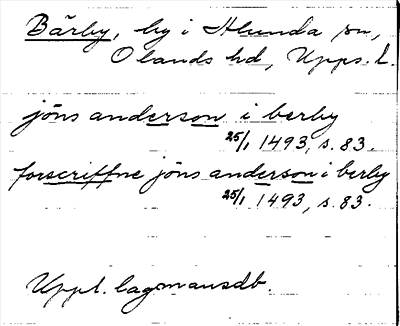 Bärby, by i Alunda sn,
Olands hd, Upps. l.
jöns anderson i berby
25/1 1493, s. 83.
forscriffne jöns anderson i berby
25/1 1493, s. 83.
Uppl. lagmansdb.